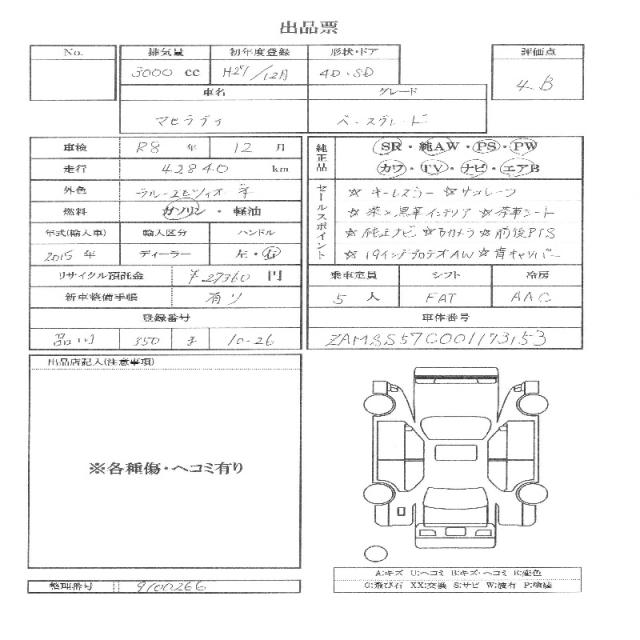 出品票
No. 排気量 初年度登録 形状・ドア 評価点
3000 cc H27/12月 4D・SD 4.B
車名 グレード
マセラティ ベースグレード
車検 R8 年 12 月
走行 42840 km
外色
燃料 ガソリン・軽油
年式(輸入車) 輸入区分 ハンドル
2015年 ディーラー 左・右
リサイクル預託金 ¥27360 円
新車整備手帳 有り
登録番号
品川 350 ま 10-26
純正品 SR・純AW・PS・PW
カワ・TV・ナビ・エアB
セールスポイント ☆キーレスゴー ☆サンルーフ
☆茶×黒革インテリア ☆茶革シート
☆純正ナビ ☆Bカメラ ☆前後PTS
☆19インチプロテオAW ☆青キャリパー
乗車定員 シフト 冷房
5人 FAT AAC
車体番号
ZAMSS57C001173153
出品店記入(注意事項)
※各種傷・ヘコミ有り
A:キズ U:ヘコミ B:キズ・ヘコミ K:褪色
G:飛び石 XX:交換 S:サビ W:波有 P:塗装
整理番号 9100266